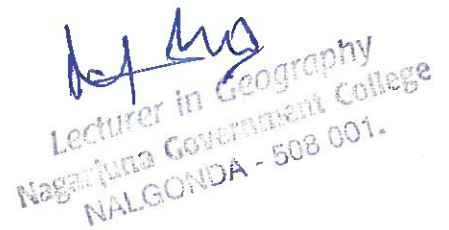 Lecturer in Geography
Nagarjuna Government College
NALGONDA - 508 001.